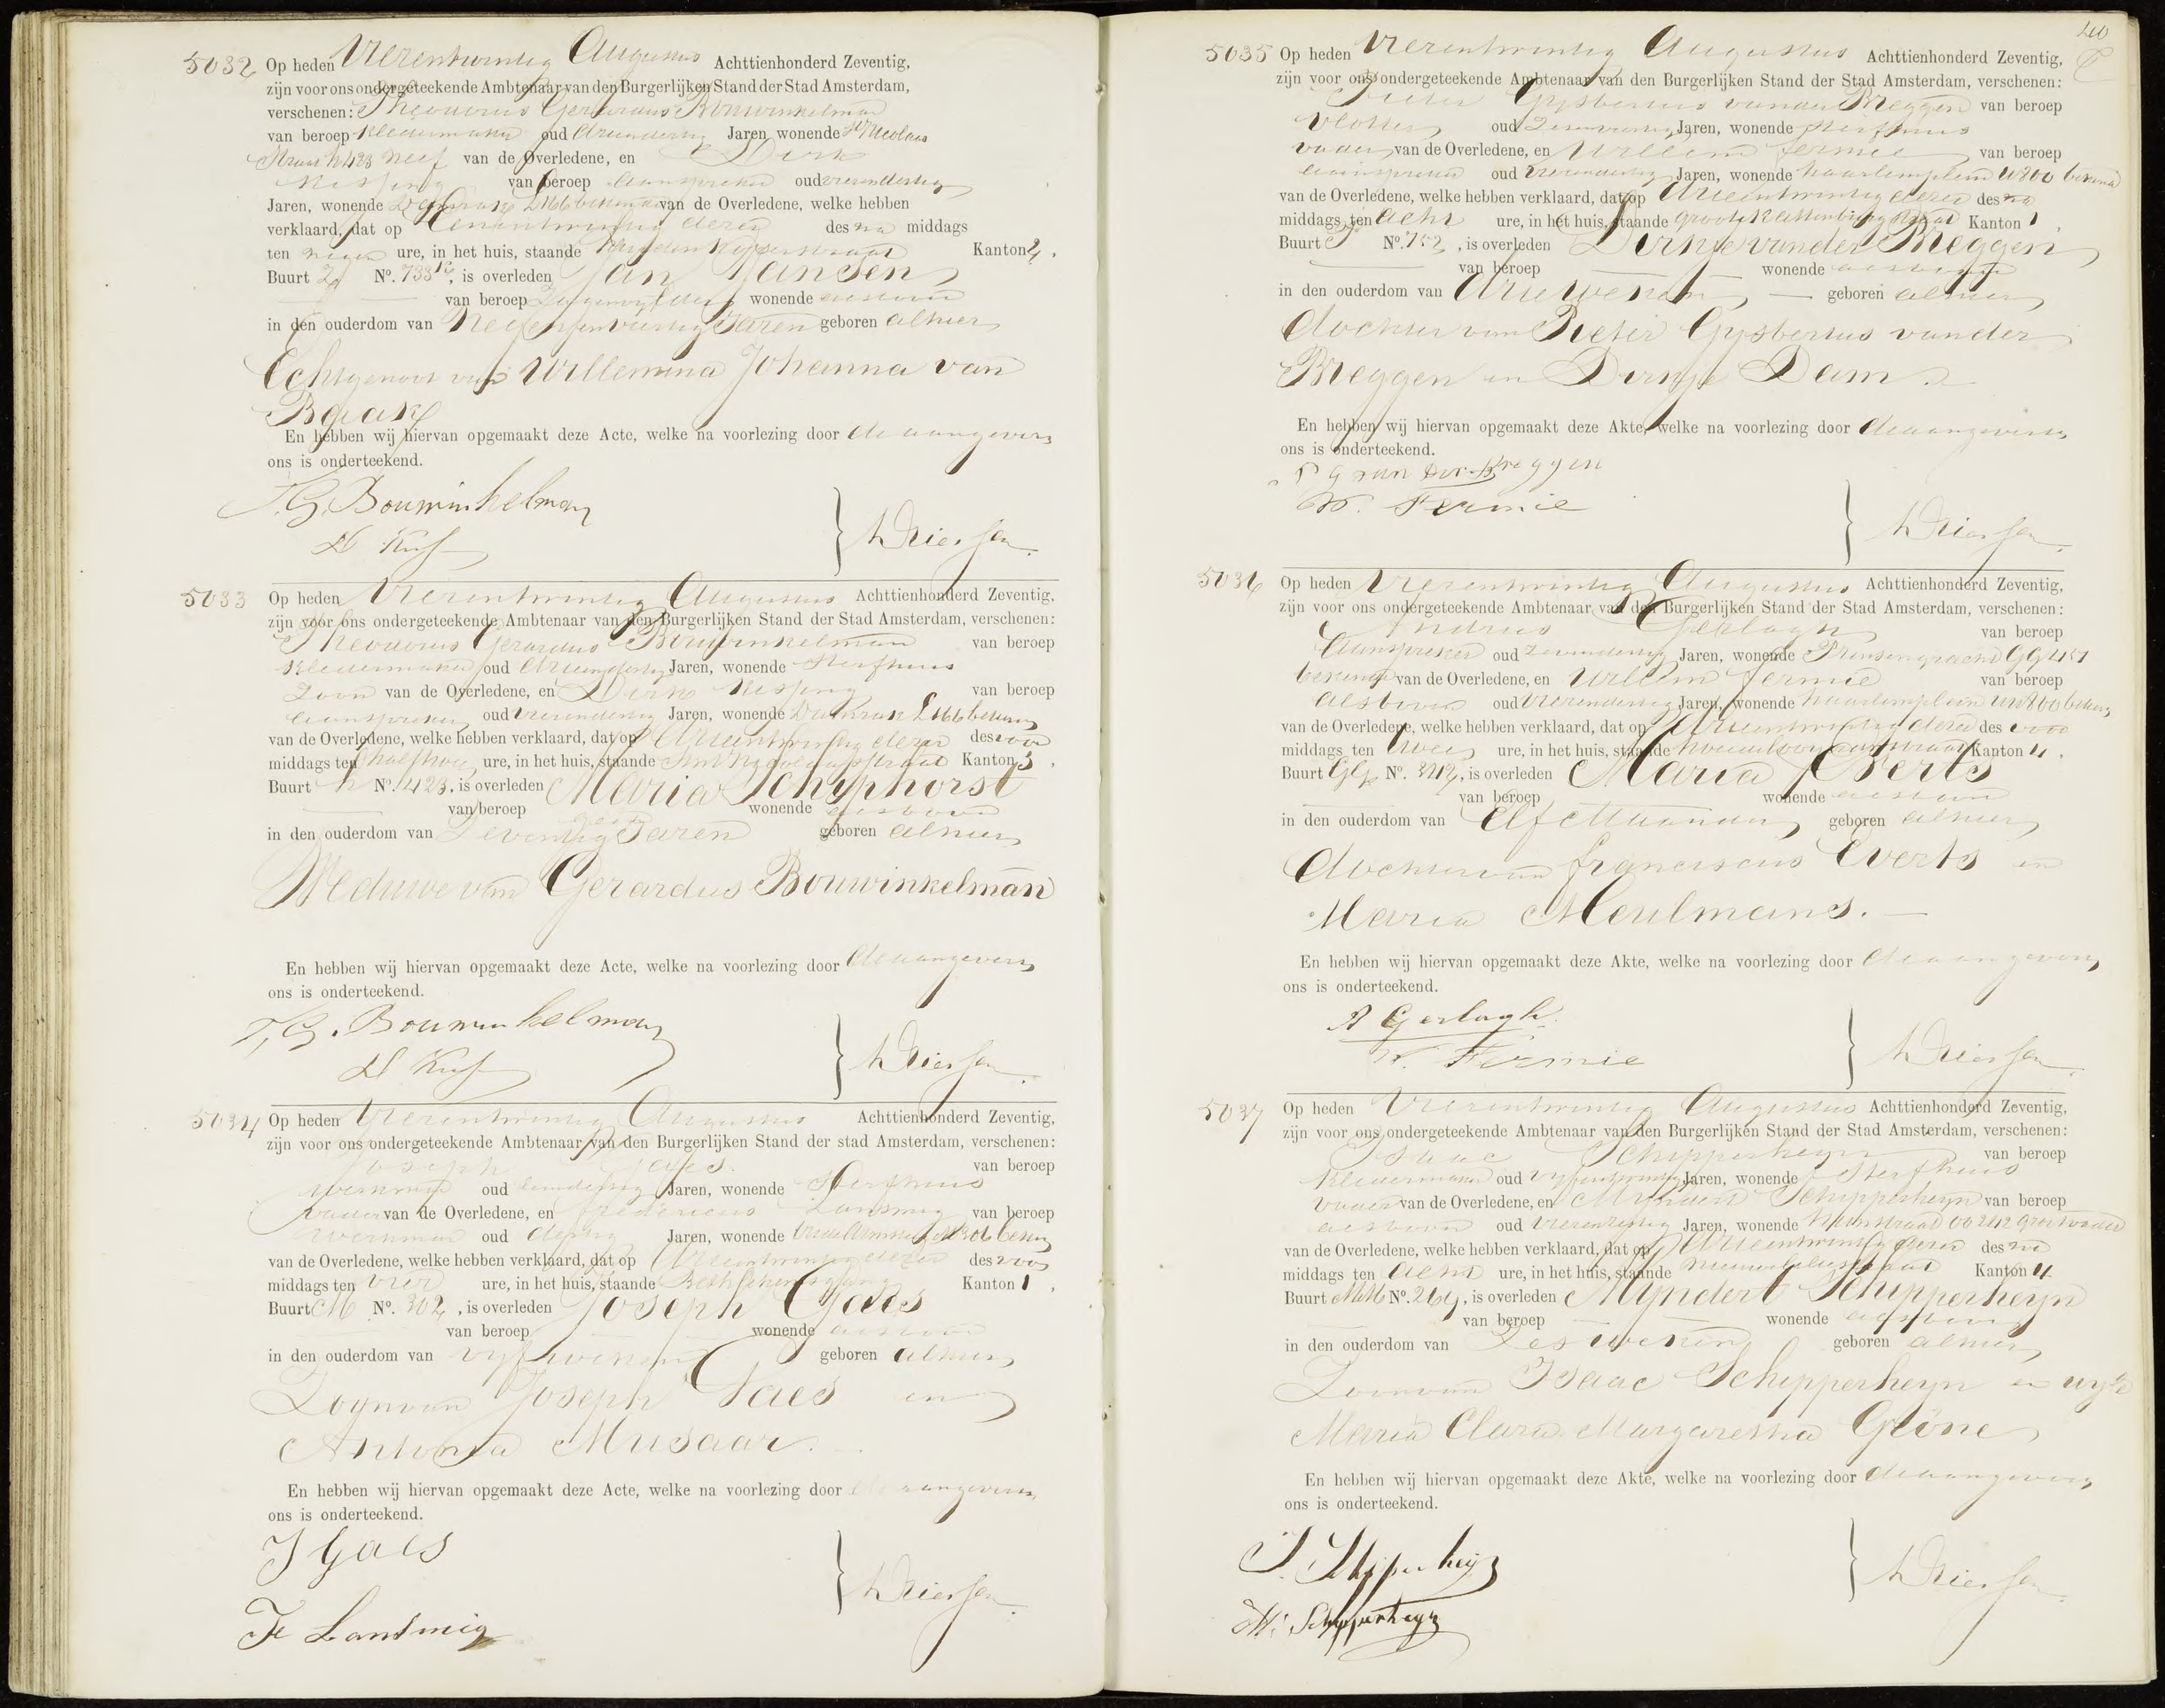 5032 Op heden Vierentwintig Augustus Achttienhonderd Zeventig,
zijn voor ons ondergeteekende Ambtenaar van den Burgerlijken Stand der Stad Amsterdam,
verschenen: Theodorus Gerardus Bouwinkelman
van beroep Kleedermaker oud drieendertig Jaren, wonende St Nicolaas
Straat h 423 neef van de Overledene, en Dirk
van beroep aanspreker oud vierendertig
Jaren, wonende L 166 bekende van de Overledene, welke hebben
verklaard, dat op Eenentwintig dezer des na middags
ten negen ure, in het huis, staande Kanton 4.
Buurt No. 733, is overleden Jan Jansen
van beroep wonende aldaar
in den ouderdom van Jaren geboren alhier
Echtgenoot van Willemina Johanna van
Braak
En hebben wij hiervan opgemaakt deze Acte, welke na voorlezing door de aangevers
ons is onderteekend.
T. G. Bouwinkelman
D
5033 Op heden Vierentwintig Augustus Achttienhonderd Zeventig,
zijn voor ons ondergeteekende Ambtenaar van den Burgerlijken Stand der Stad Amsterdam, verschenen:
Theodorus Gerardus Bouwinkelman van beroep
Kleedermaker oud drieendertig Jaren, wonende Sterfhuis
Zoon van de Overledene, en Dirk van beroep
aanspreker oud vierendertig Jaren, wonende L 166 bekende
van de Overledene, welke hebben verklaard, dat op drieentwintig dezer des voor
middags ten half twee ure, in het huis, staande St Nicolaasstraat Kanton 3.
Buurt h No. 423, is overleden Maria Schyphorst
van beroep wonende aldaar
in den ouderdom van Zeventig Jaren geboren alhier
Weduwe van Gerardus Bouwinkelman
En hebben wij hiervan opgemaakt deze Acte, welke na voorlezing door de aangevers
ons is onderteekend.
T. G. Bouwinkelman
D
5034 Op heden Vierentwintig Augustus Achttienhonderd Zeventig,
zijn voor ons ondergeteekende Ambtenaar van den Burgerlijken Stand der stad Amsterdam, verschenen:
Joseph Gaes van beroep
werkman oud eendertig Jaren, wonende Sterfhuis
vader van de Overledene, en Fredericus Lansmig van beroep
werkman oud dertig Jaren, wonende bekende
van de Overledene, welke hebben verklaard, dat op drieentwintig dezer des voor
middags ten vier ure, in het huis, staande Kanton 1.
Buurt M No. 302, is overleden Joseph Gaes
van beroep wonende aldaar
in den ouderdom van vyf weken geboren alhier
Zoon van Joseph Gaes en
Antonia Musaar.
En hebben wij hiervan opgemaakt deze Acte, welke na voorlezing door de aangevers
ons is onderteekend.
J Gaes
F Lansmig
40
5035 Op heden Vierentwintig Augustus Achttienhonderd Zeventig,
zijn voor ons ondergeteekende Ambtenaar van den Burgerlijken Stand der Stad Amsterdam, verschenen:
Pieter Gysbertus van der Breggen van beroep
Vlotter oud Jaren, wonende Sterfhuis
vader van de Overledene, en Willem Fermie van beroep
aanspreker oud vierendertig Jaren, wonende haarlemplein W 800 bekend
van de Overledene, welke hebben verklaard, dat op drieentwintig dezer des na
middags ten acht ure, in het huis, staande groote Kattenburg straat Kanton 1.
Buurt No. 752, is overleden Dirkje van der Breggen
van beroep wonende aldaar
in den ouderdom van drie weken geboren alhier
dochter van Pieter Gysbertus van der
Breggen en Dirkje Dam.
En hebben wij hiervan opgemaakt deze Akte, welke na voorlezing door de aangevers
ons is onderteekend.
P G van der Breggen
W. Fermie
5036 Op heden Vierentwintig Augustus Achttienhonderd Zeventig,
zijn voor ons ondergeteekende Ambtenaar van den Burgerlijken Stand der Stad Amsterdam, verschenen:
Andries Gerlagh van beroep
Aanspreker oud Jaren, wonende Prinsengracht GG 451
bekende van de Overledene, en Willem Fermie van beroep
alsboven oud vierendertig Jaren, wonende haarlemplein W 800 bekend
van de Overledene, welke hebben verklaard, dat op drieentwintig dezer des voor
middags ten twee ure, in het huis, staande Kanton 4.
Buurt GG No. 342, is overleden Maria Everts
van beroep wonende aldaar
in den ouderdom van elf Maanden geboren alhier
dochter van Franciscus Everts en
Maria Meulmans.
En hebben wij hiervan opgemaakt deze Akte, welke na voorlezing door de aangevers
ons is onderteekend.
A Gerlagh
W. Fermie
5037 Op heden Vierentwintig Augustus Achttienhonderd Zeventig,
zijn voor ons ondergeteekende Ambtenaar van den Burgerlijken Stand der Stad Amsterdam, verschenen:
Isaac Schipperheyn van beroep
Kleedermaker oud vyfentwintig Jaren, wonende Sterfhuis
Vader van de Overledene, en Myndert Schipperheyn van beroep
alsboven oud vierenzestig Jaren, wonende grootvader
van de Overledene, welke hebben verklaard, dat op drieentwintig dezer des na
middags ten acht ure, in het huis, staande Kanton 4
Buurt MM No. 264, is overleden Myndert Schipperheyn
van beroep wonende alsboven
in den ouderdom van Zes weken geboren alhier
Zoon van Isaac Schipperheyn en
Maria Clara Margaretha Glöne
En hebben wij hiervan opgemaakt deze Akte, welke na voorlezing door de aangevers
ons is onderteekend.
I. Schipperheijn
M. Schipperheyn